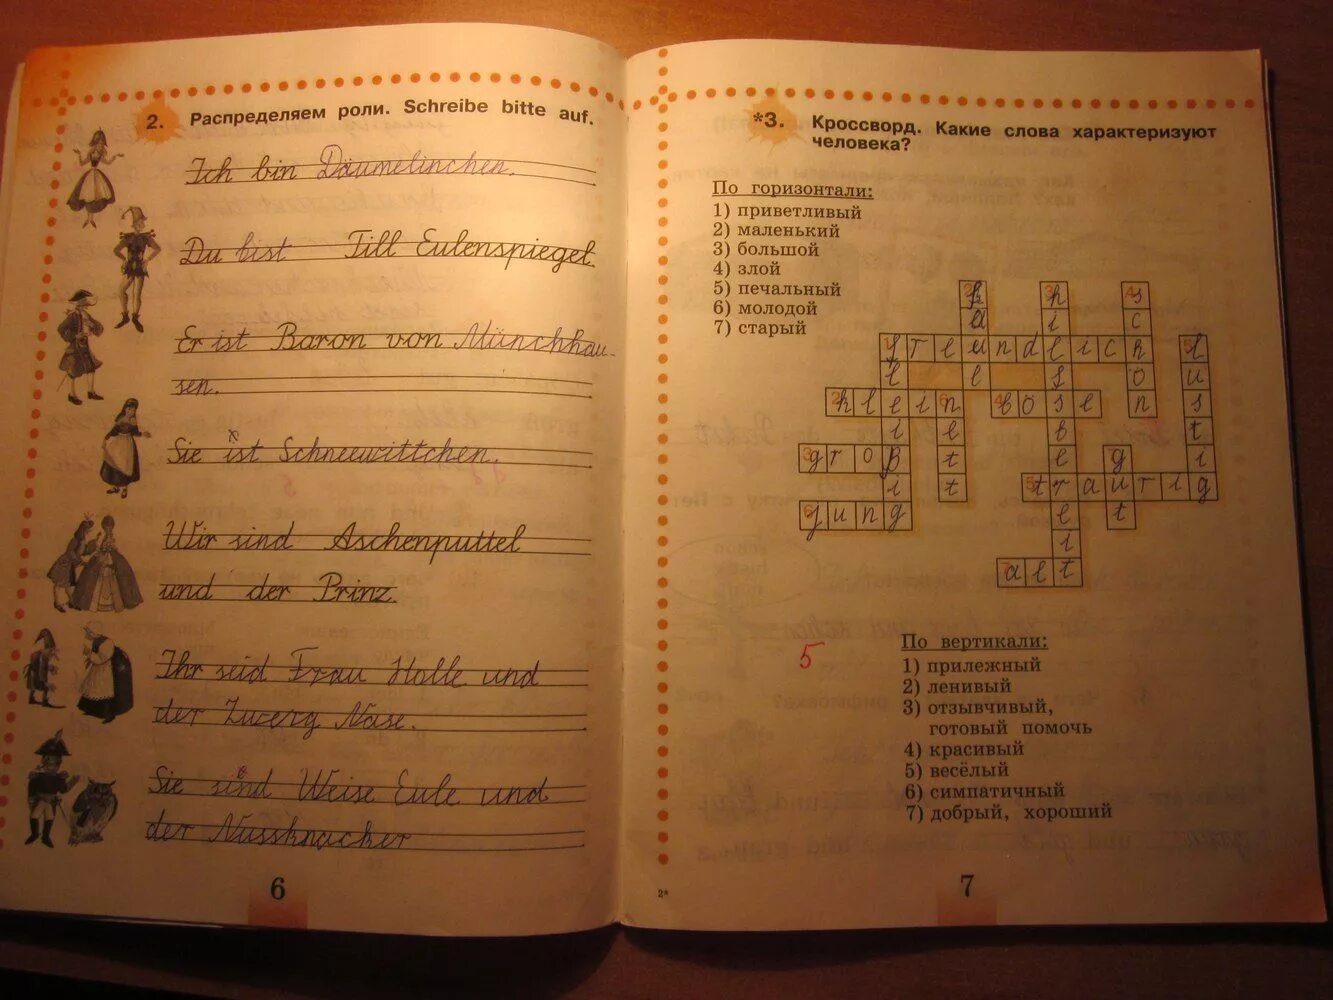 2. Распределяем роли. Schreibe bitte auf.
Ich bin Däumelinchen.
Du bist Till Eulenspiegel
Er ist Baron von Münchhau-
sen.
Sie ist Schneewittchen.
Wir sind Aschenputtel
und der Prinz.
Ihr seid Frau Holle und
der Zwerg Nase.
Sie sind Weise Eule und
der Nussknacker
6
*3. Кроссворд. Какие слова характеризуют
человека?
По горизонтали:
1) приветливый
2) маленький
3) большой
4) злой
5) печальный
6) молодой
7) старый
freundlich
klein
böse
groß
traurig
jung
alt
fleißig
faul
hilfsbereit
schön
lustig
nett
gut
5
По вертикали:
1) прилежный
2) ленивый
3) отзывчивый,
готовый помочь
4) красивый
5) весёлый
6) симпатичный
7) добрый, хороший
2*
7